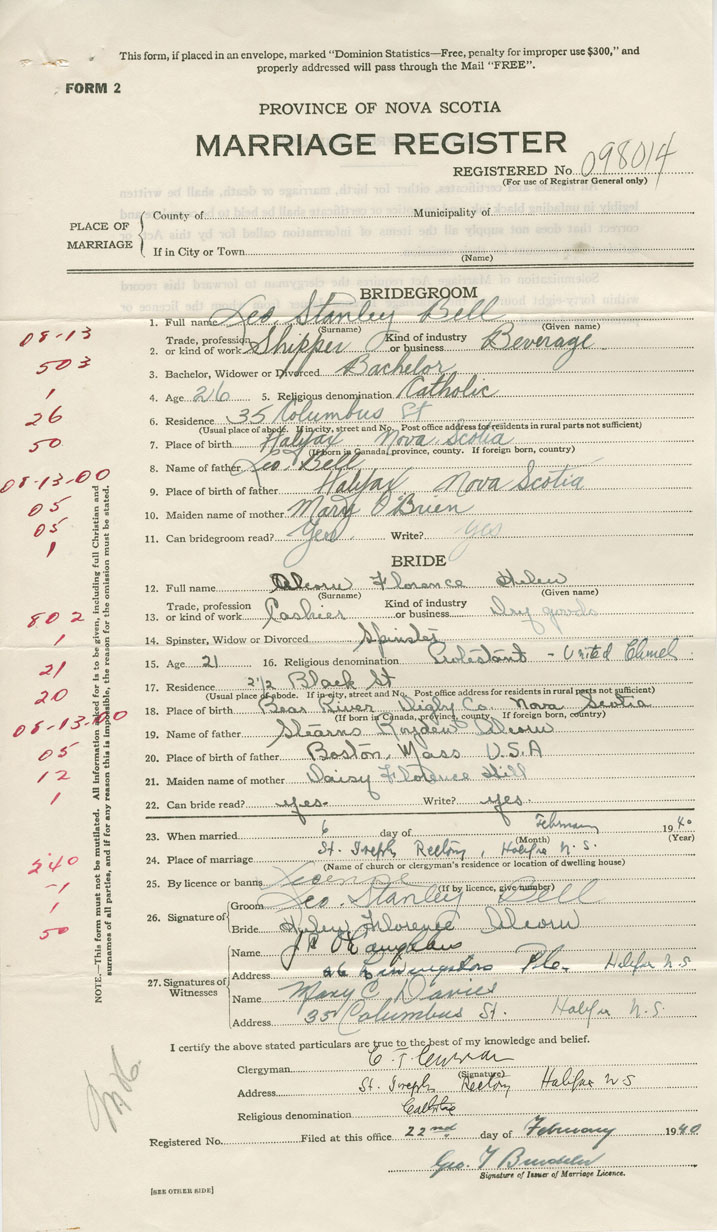 This form, if placed in an envelope, marked "Dominion Statistics—Free, penalty for improper use $300," and
properly addressed will pass through the Mail "FREE".
FORM 2
PROVINCE OF NOVA SCOTIA
MARRIAGE REGISTER
REGISTERED No. 098014
(For use of Registrar General only)
PLACE OF MARRIAGE
County of
Municipality of
If in City or Town
(Name)
BRIDEGROOM
1. Full name Geo. Stanley Bell
(Surname) (Given name)
Trade, profession Kind of industry
2. or kind of work Shipper or business Beverage
3. Bachelor, Widower or Divorced Bachelor
4. Age 26 5. Religious denomination Catholic
6. Residence 35 Columbus St
(Usual place of abode. If in city, street and No. Post office address for residents in rural parts not sufficient)
7. Place of birth Halifax Nova Scotia
(If born in Canada, province, county. If foreign born, country)
8. Name of father Geo. Bell
9. Place of birth of father Halifax Nova Scotia
10. Maiden name of mother Mary O'Brien
11. Can bridegroom read? Yes Write? Yes
BRIDE
12. Full name Alcorn Florence Helen
(Surname) (Given name)
Trade, profession Kind of industry
13. or kind of work Cashier or business Dry goods
14. Spinster, Widow or Divorced Spinster
15. Age 21 16. Religious denomination Protestant - United Church
17. Residence 2 1/2 Black St
(Usual place of abode. If in city, street and No. Post office address for residents in rural parts not sufficient)
18. Place of birth Bear River Digby Co. Nova Scotia
(If born in Canada, province, county. If foreign born, country)
19. Name of father Stearns Royden Alcorn
20. Place of birth of father Boston, Mass U.S.A
21. Maiden name of mother Daisy Florence Hill
22. Can bride read? yes. Write? yes.
23. When married 6 day of February 1940
(Month) (Year)
24. Place of marriage St. Joseph Rectory, Halifax N.S.
(Name of church or clergyman's residence or location of dwelling house)
25. By licence or banns Licence
(If by licence, give number)
26. Signature of
Groom Geo. Stanley Bell
Bride Helen Florence Alcorn
27. Signatures of Witnesses
Name
Address Ple. Halifax N.S
Name Mary C Davies
Address 35 Columbus St. Halifax N.S.
I certify the above stated particulars are true to the best of my knowledge and belief.
Clergyman
(Signature)
Address St. Joseph Rectory Halifax N S
Religious denomination Catholic
Registered No. Filed at this office 22nd day of February 1940
Geo. F
Signature of Issuer of Marriage Licence.
[SEE OTHER SIDE]
NOTE.—This form must not be mutilated. All information asked for is to be given, including full Christian and
surnames of all parties, and if for any reason this is impossible, the reason for the omission must be stated.
08-13
503
1
26
50
08-13-00
05
05
1
802
1
21
20
08-13-00
05
12
1
240
-1
1
50